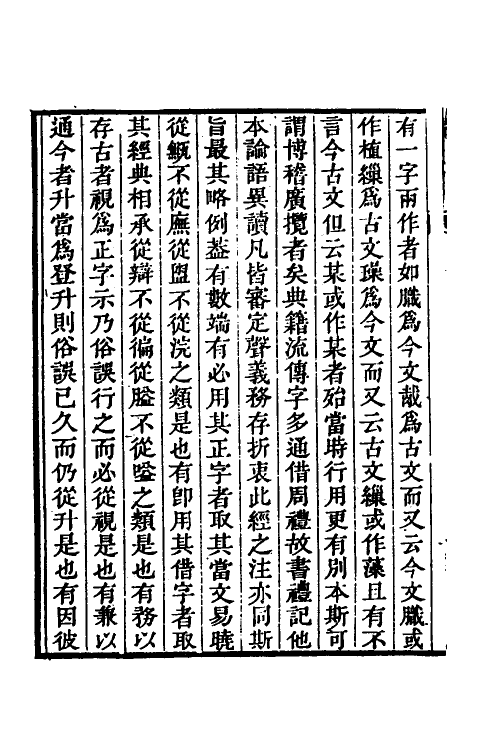 有一字兩作者如膱爲今文胾爲古文而又云今文膱或
作植繅爲古文璪爲今文而又云古文繅或作藻且有不
言今古文但云某或作某者殆當時行用更有別本斯可
謂博稽廣攬者矣典籍流傳字多通借周禮故書禮記他
本論語異讀凡皆審定聲義務存折衷此經之注亦同斯
旨最其略例葢有數端有必用其正字者取其當文易曉
從甒不從廡從盥不從浣之類是也有卽用其借字者取
其經典相承從辯不從徧從膉不從嗌之類是也有務以
存古者視爲正字示乃俗誤行之而必從視是也有兼以
通今者升當爲登升則俗誤已久而仍從升是也有因彼